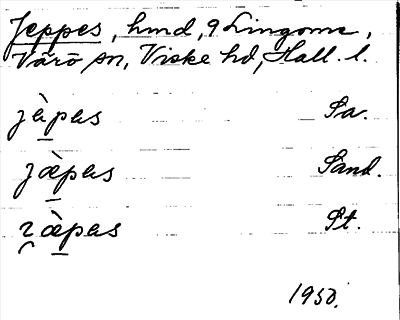 Jeppes, hmd, 9 Lingome,
Värö sn, Viske hd, Hall. l.
jàpas Sa.
jæ̀pas Sand.
ɿæ̀pas St.
1950.